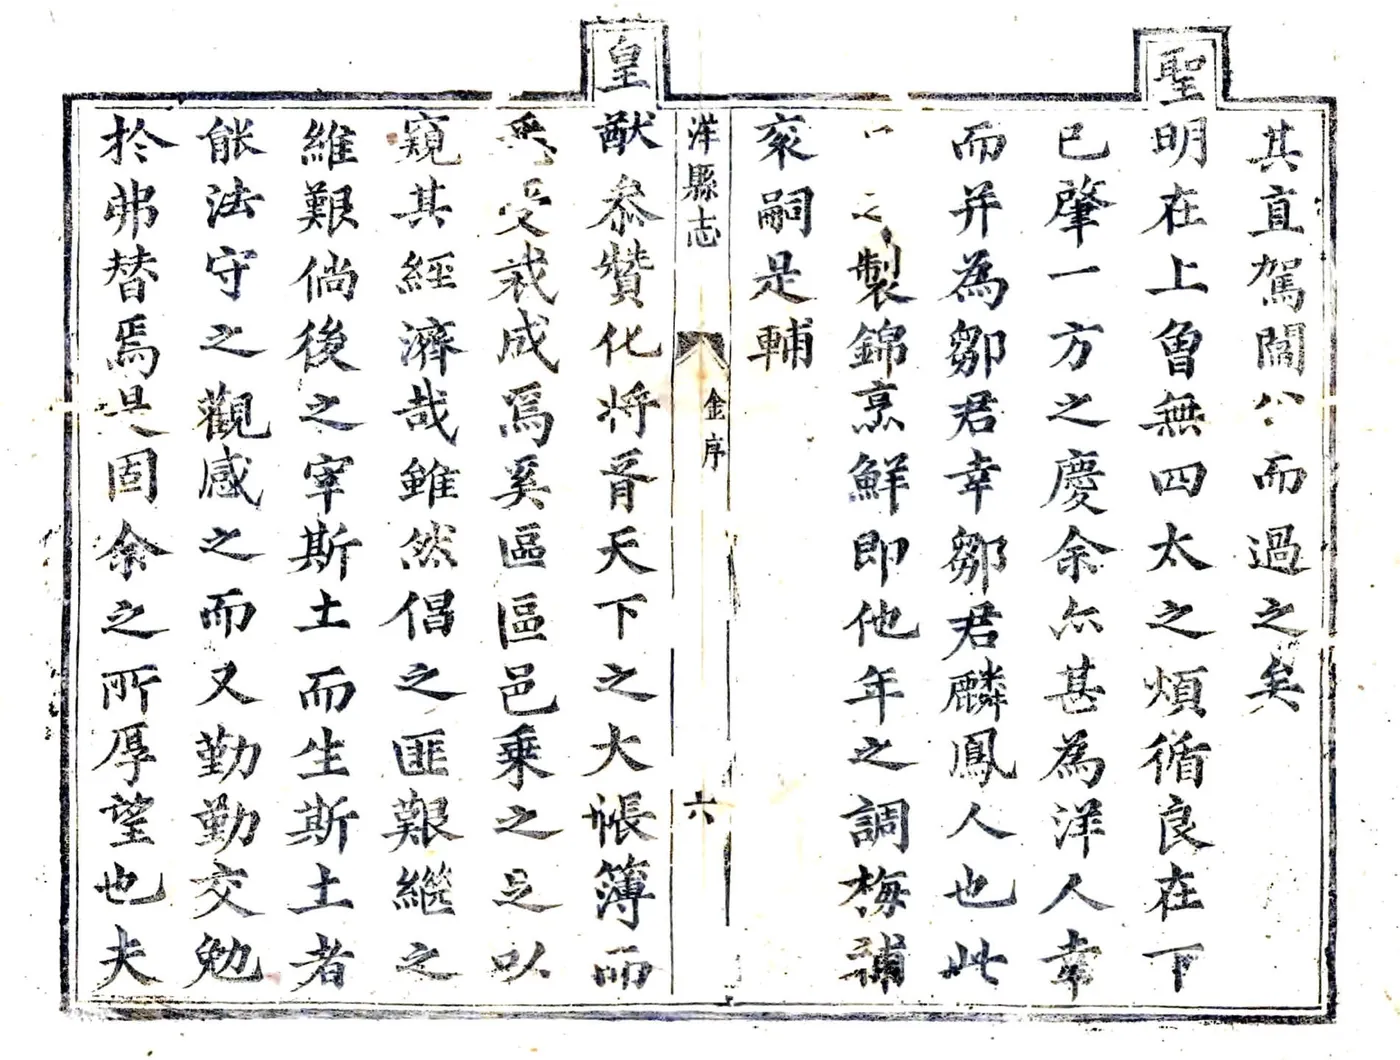 其直駕闊 而過之矣
聖明在上曾無四太之煩循良在下
已肇一方之慶余亦甚為洋人幸
而并為鄒君幸鄒君麟鳳人也此
之製錦烹鮮即他年之調梅補
袞嗣是輔
洋縣志 金序 六
皇猷叅贊化將胥天下之大帳簿而
受裁成焉奚區區邑乗之足以
窺其經濟哉雖然倡之匪艱繼之
維艱倘後之宰斯土而生斯土者
能法守之觀感之而又勤勤交勉
扵弗替焉是固余之所厚望也夫